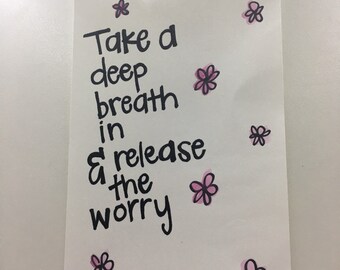 Take a
deep
breath
in
& release
the
worry